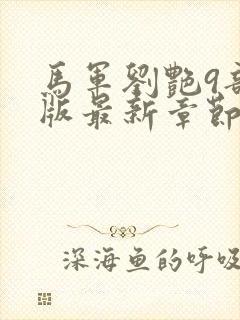 馬軍劉艷9部
版最新章節
深海鱼的呼吸